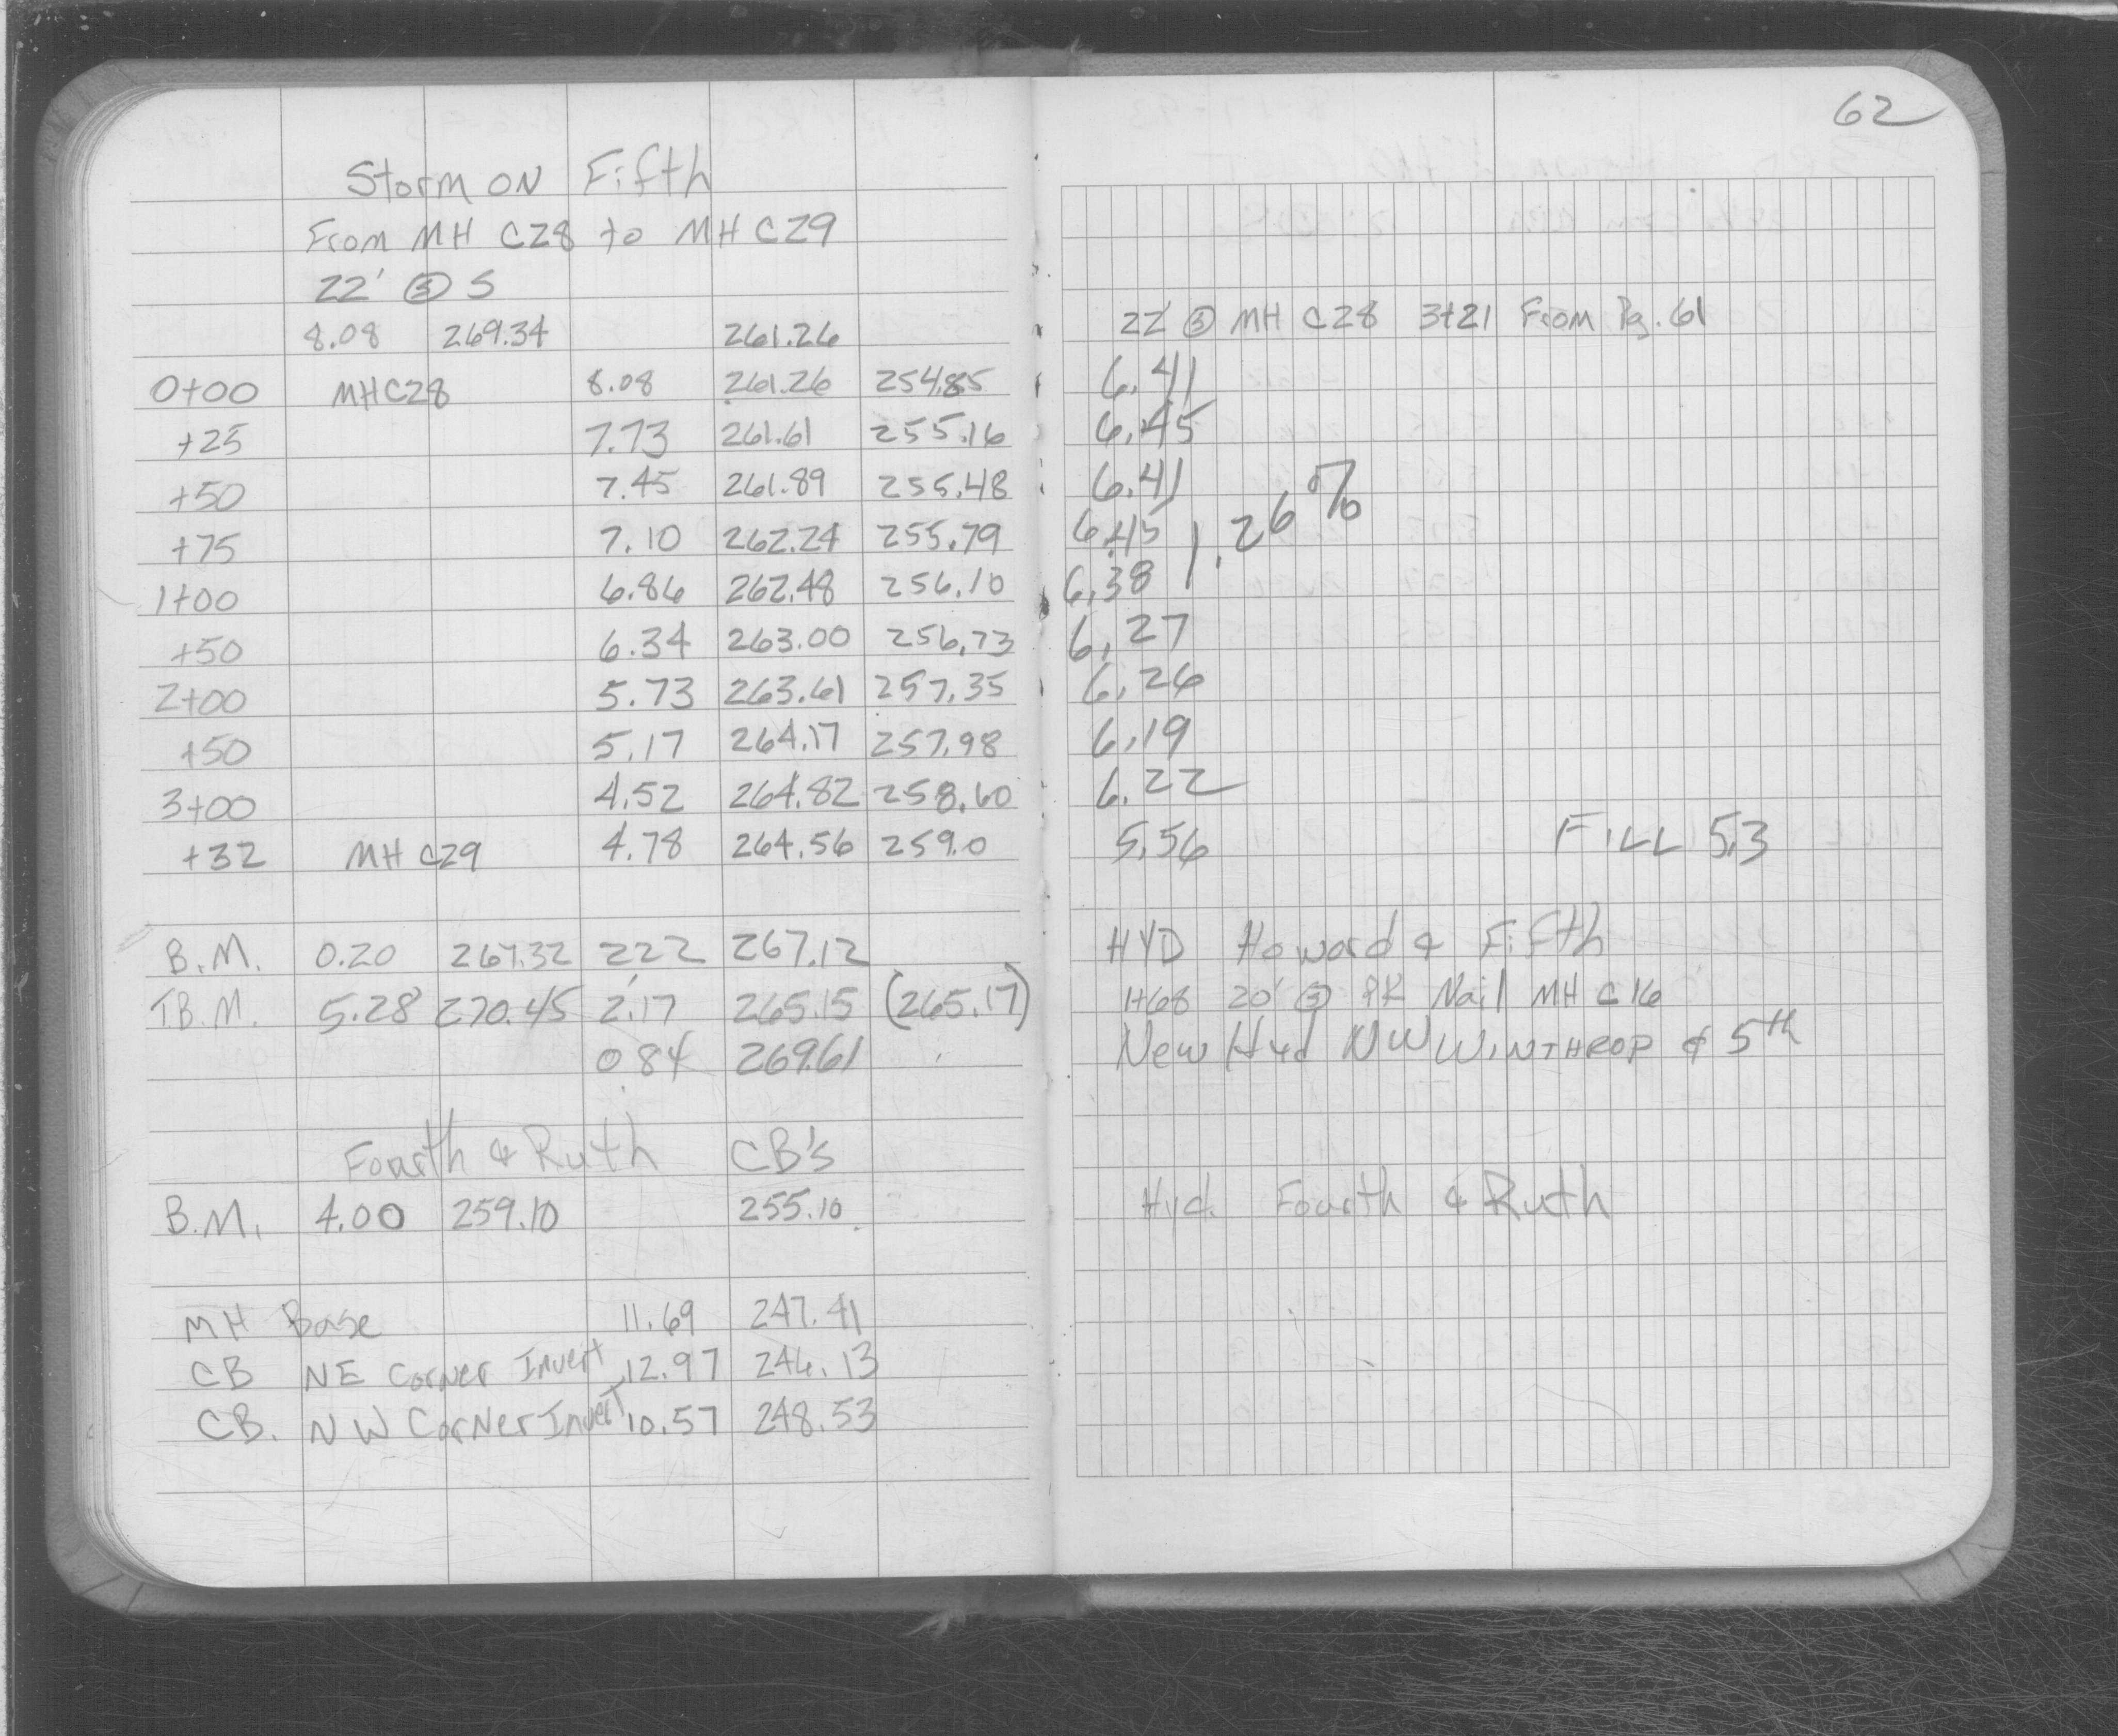 62
Storm ON Fifth
From MH C28 to MH C29
22' Ⓢ S
8.08 269.34 261.26 22' Ⓢ MH C28 3+21 From Pg. 61
0+00 MHC28 8.08 261.26 254.85 6.41
+25 7.73 261.61 255.16 6.45
+50 7.45 261.89 255.48 6.41
+75 7.10 262.24 255.79 6.45 1.26%
1+00 6.86 262.48 256.10 6.38
+50 6.34 263.00 256.73 6.27
2+00 5.73 263.61 257.35 6.26
+50 5.17 264.17 257.98 6.19
3+00 4.52 264.82 258.60 6.22
+32 MH C29 4.78 264.56 259.0 5.56 FILL 5.3
B.M. 0.20 267.32 2.22 267.12 HYD Howard & Fifth
T.B.M. 5.28 270.45 2.17 265.15 (265.17) 1+68 20' Ⓢ PK Nail MH C16
0.84 269.61 New Hyd NW WINTHROP & 5th
Fourth & Ruth CB's
B.M. 4.00 259.10 255.10 Hyd. Fourth & Ruth
MH Base 11.69 247.41
CB NE Corner Invert 12.97 246.13
CB. NW Corner Invert 10.57 248.53